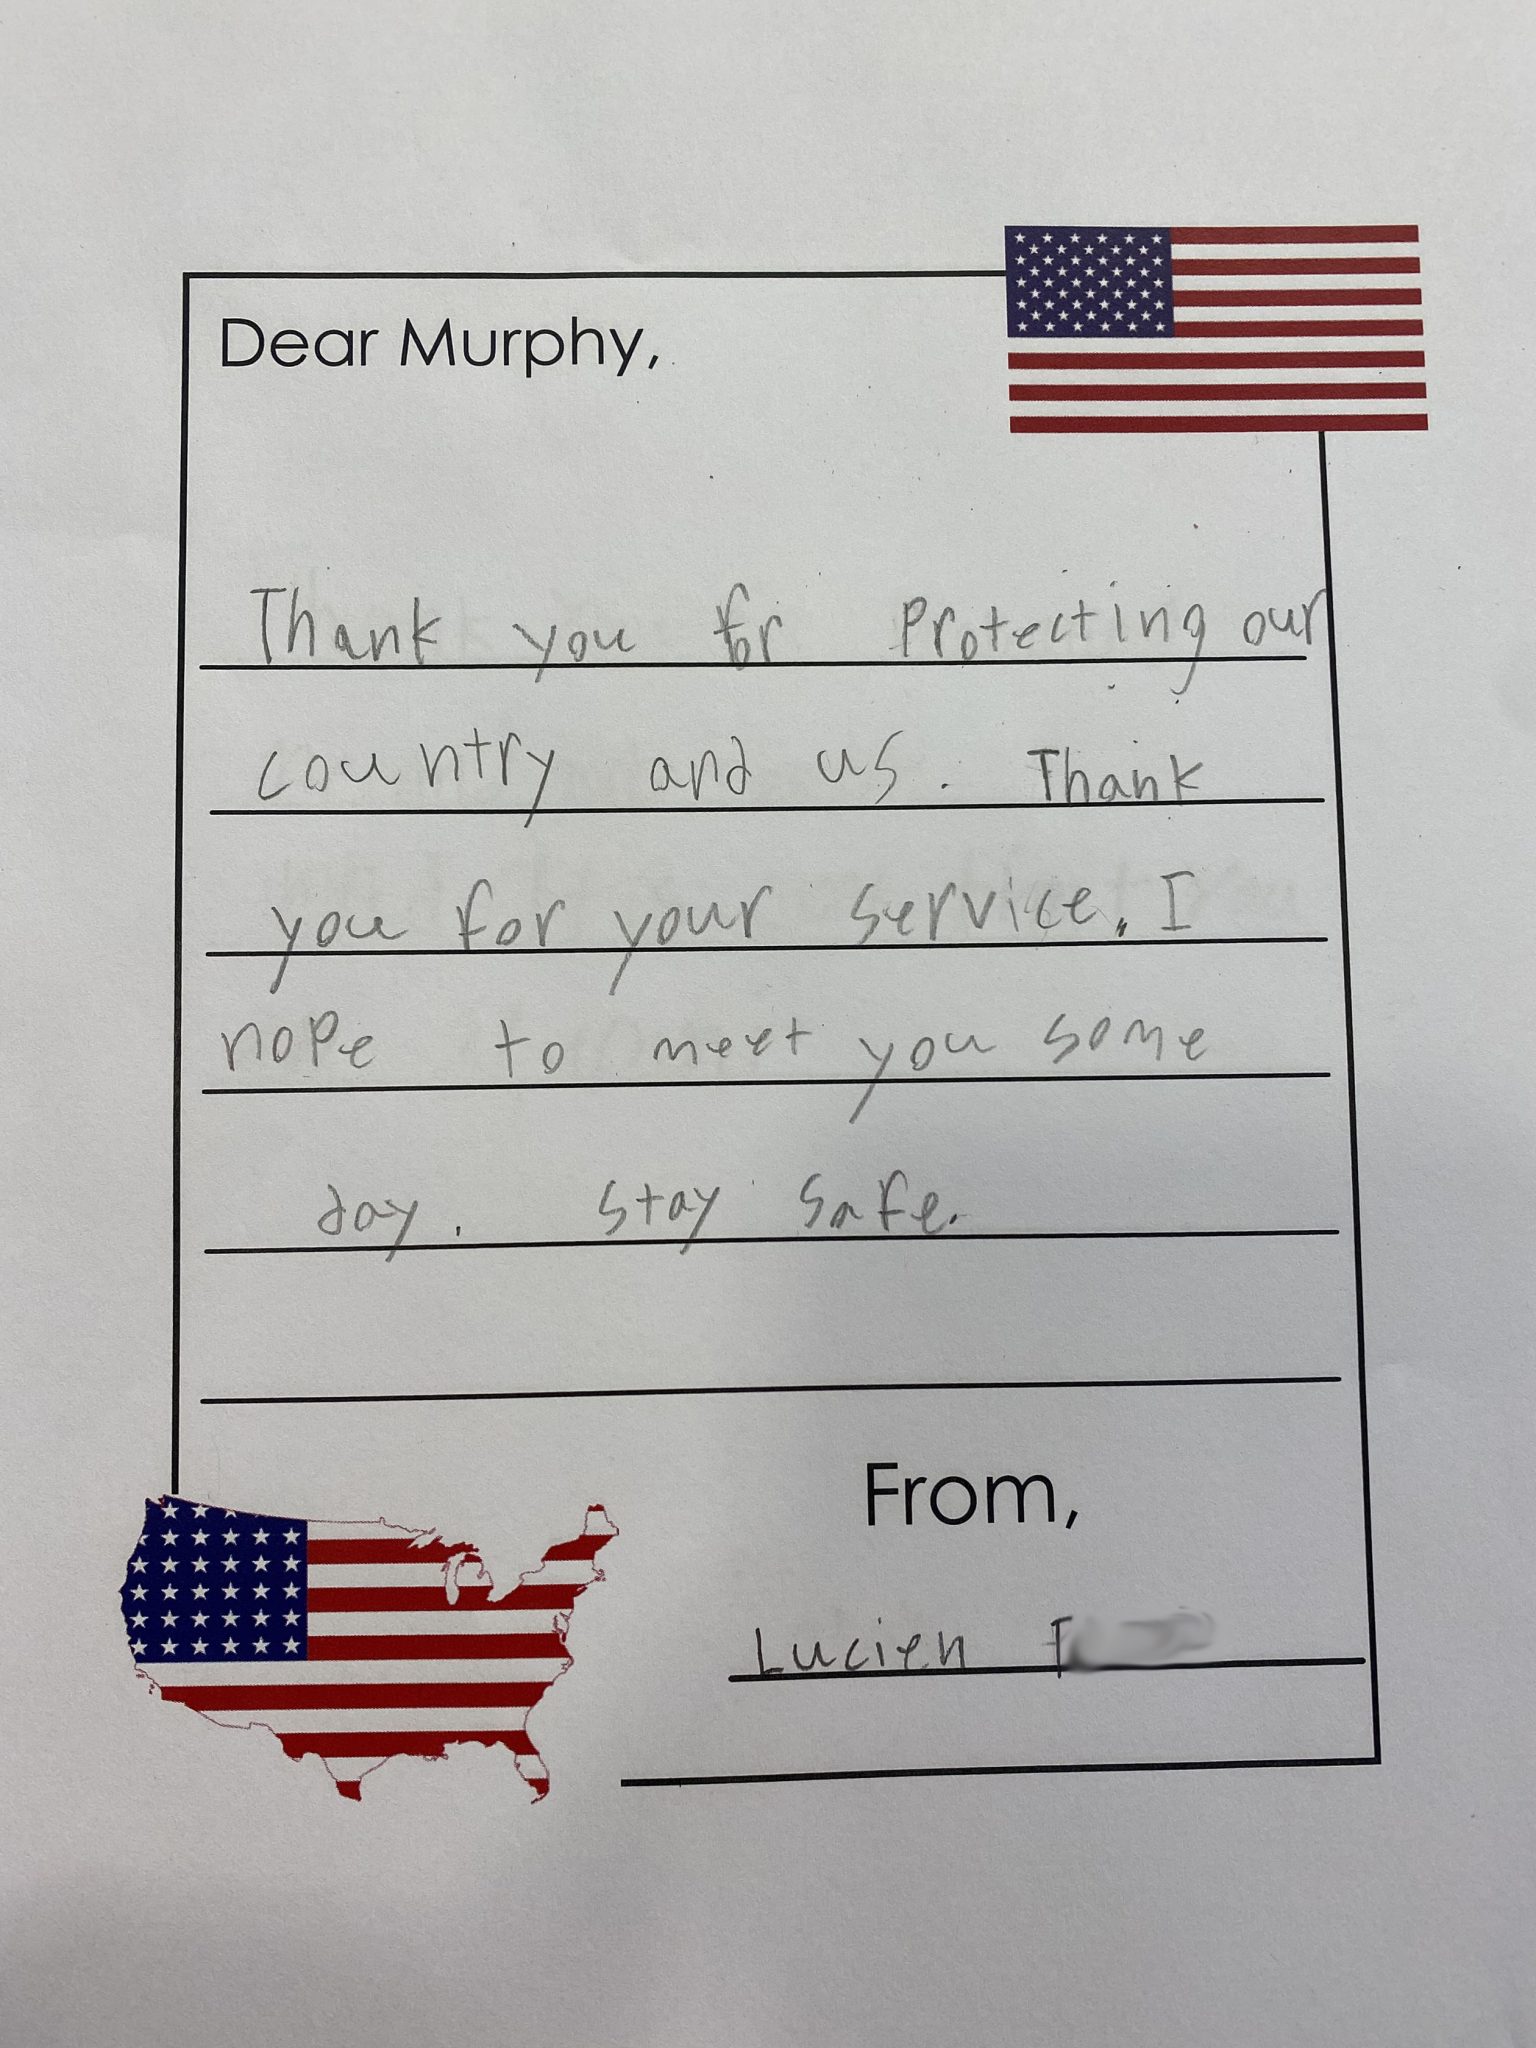 Dear Murphy,
Thank you for Protecting our
country and us. Thank
you for your service. I
hope to meet you some
day. stay safe.
From,
Lucien